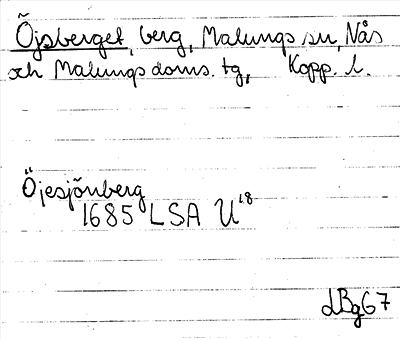 Öjsberget, berg, Malungs sn, Nås
och Malungs doms. tg, Kopp. l.
Öjesjönberg
1685 LSA U18
dBg67